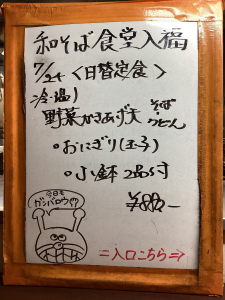 和そば食堂入福
7/24 <日替定食>
冷・温)
野菜かきあげ天 そば・うどん
・おにぎり(玉子)
・小鉢 2品付
¥880-
今日も
ガンバロウ!!
⇒入口こちら⇒